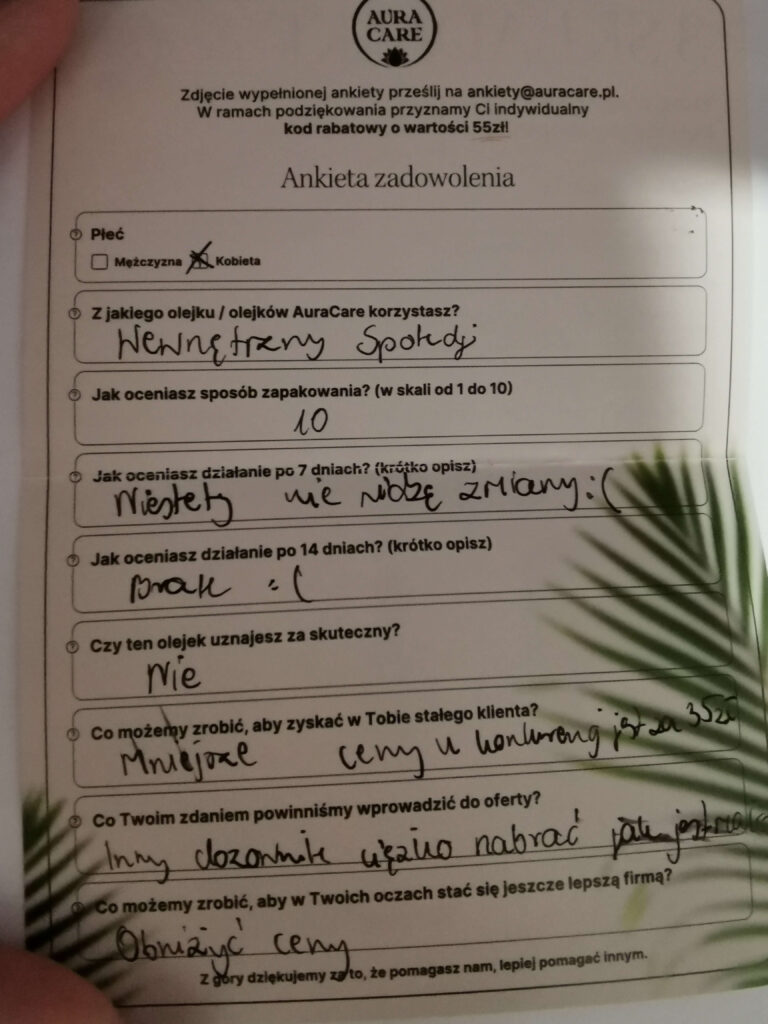 AURA
CARE
Zdjęcie wypełnionej ankiety prześlij na ankiety@auracare.pl.
W ramach podziękowania przyznamy Ci indywidualny
kod rabatowy o wartości 55zł!
Ankieta zadowolenia
Płeć
Mężczyzna Kobieta
Z jakiego olejku / olejków AuraCare korzystasz?
Wewnętrzny Spokój
Jak oceniasz sposób zapakowania? (w skali od 1 do 10)
10
Jak oceniasz działanie po 7 dniach? (krótko opisz)
Niestety nie widzę zmiany :(
Jak oceniasz działanie po 14 dniach? (krótko opisz)
Brak :(
Czy ten olejek uznajesz za skuteczny?
Nie
Co możemy zrobić, aby zyskać w Tobie stałego klienta?
Mniejsze ceny u konkurencji jest za 35zł
Co Twoim zdaniem powinniśmy wprowadzić do oferty?
Inny dozownik ciężko nabrać jak jest
Co możemy zrobić, aby w Twoich oczach stać się jeszcze lepszą firmą?
Obniżyć ceny
Z góry dziękujemy za to, że pomagasz nam, lepiej pomagać innym.